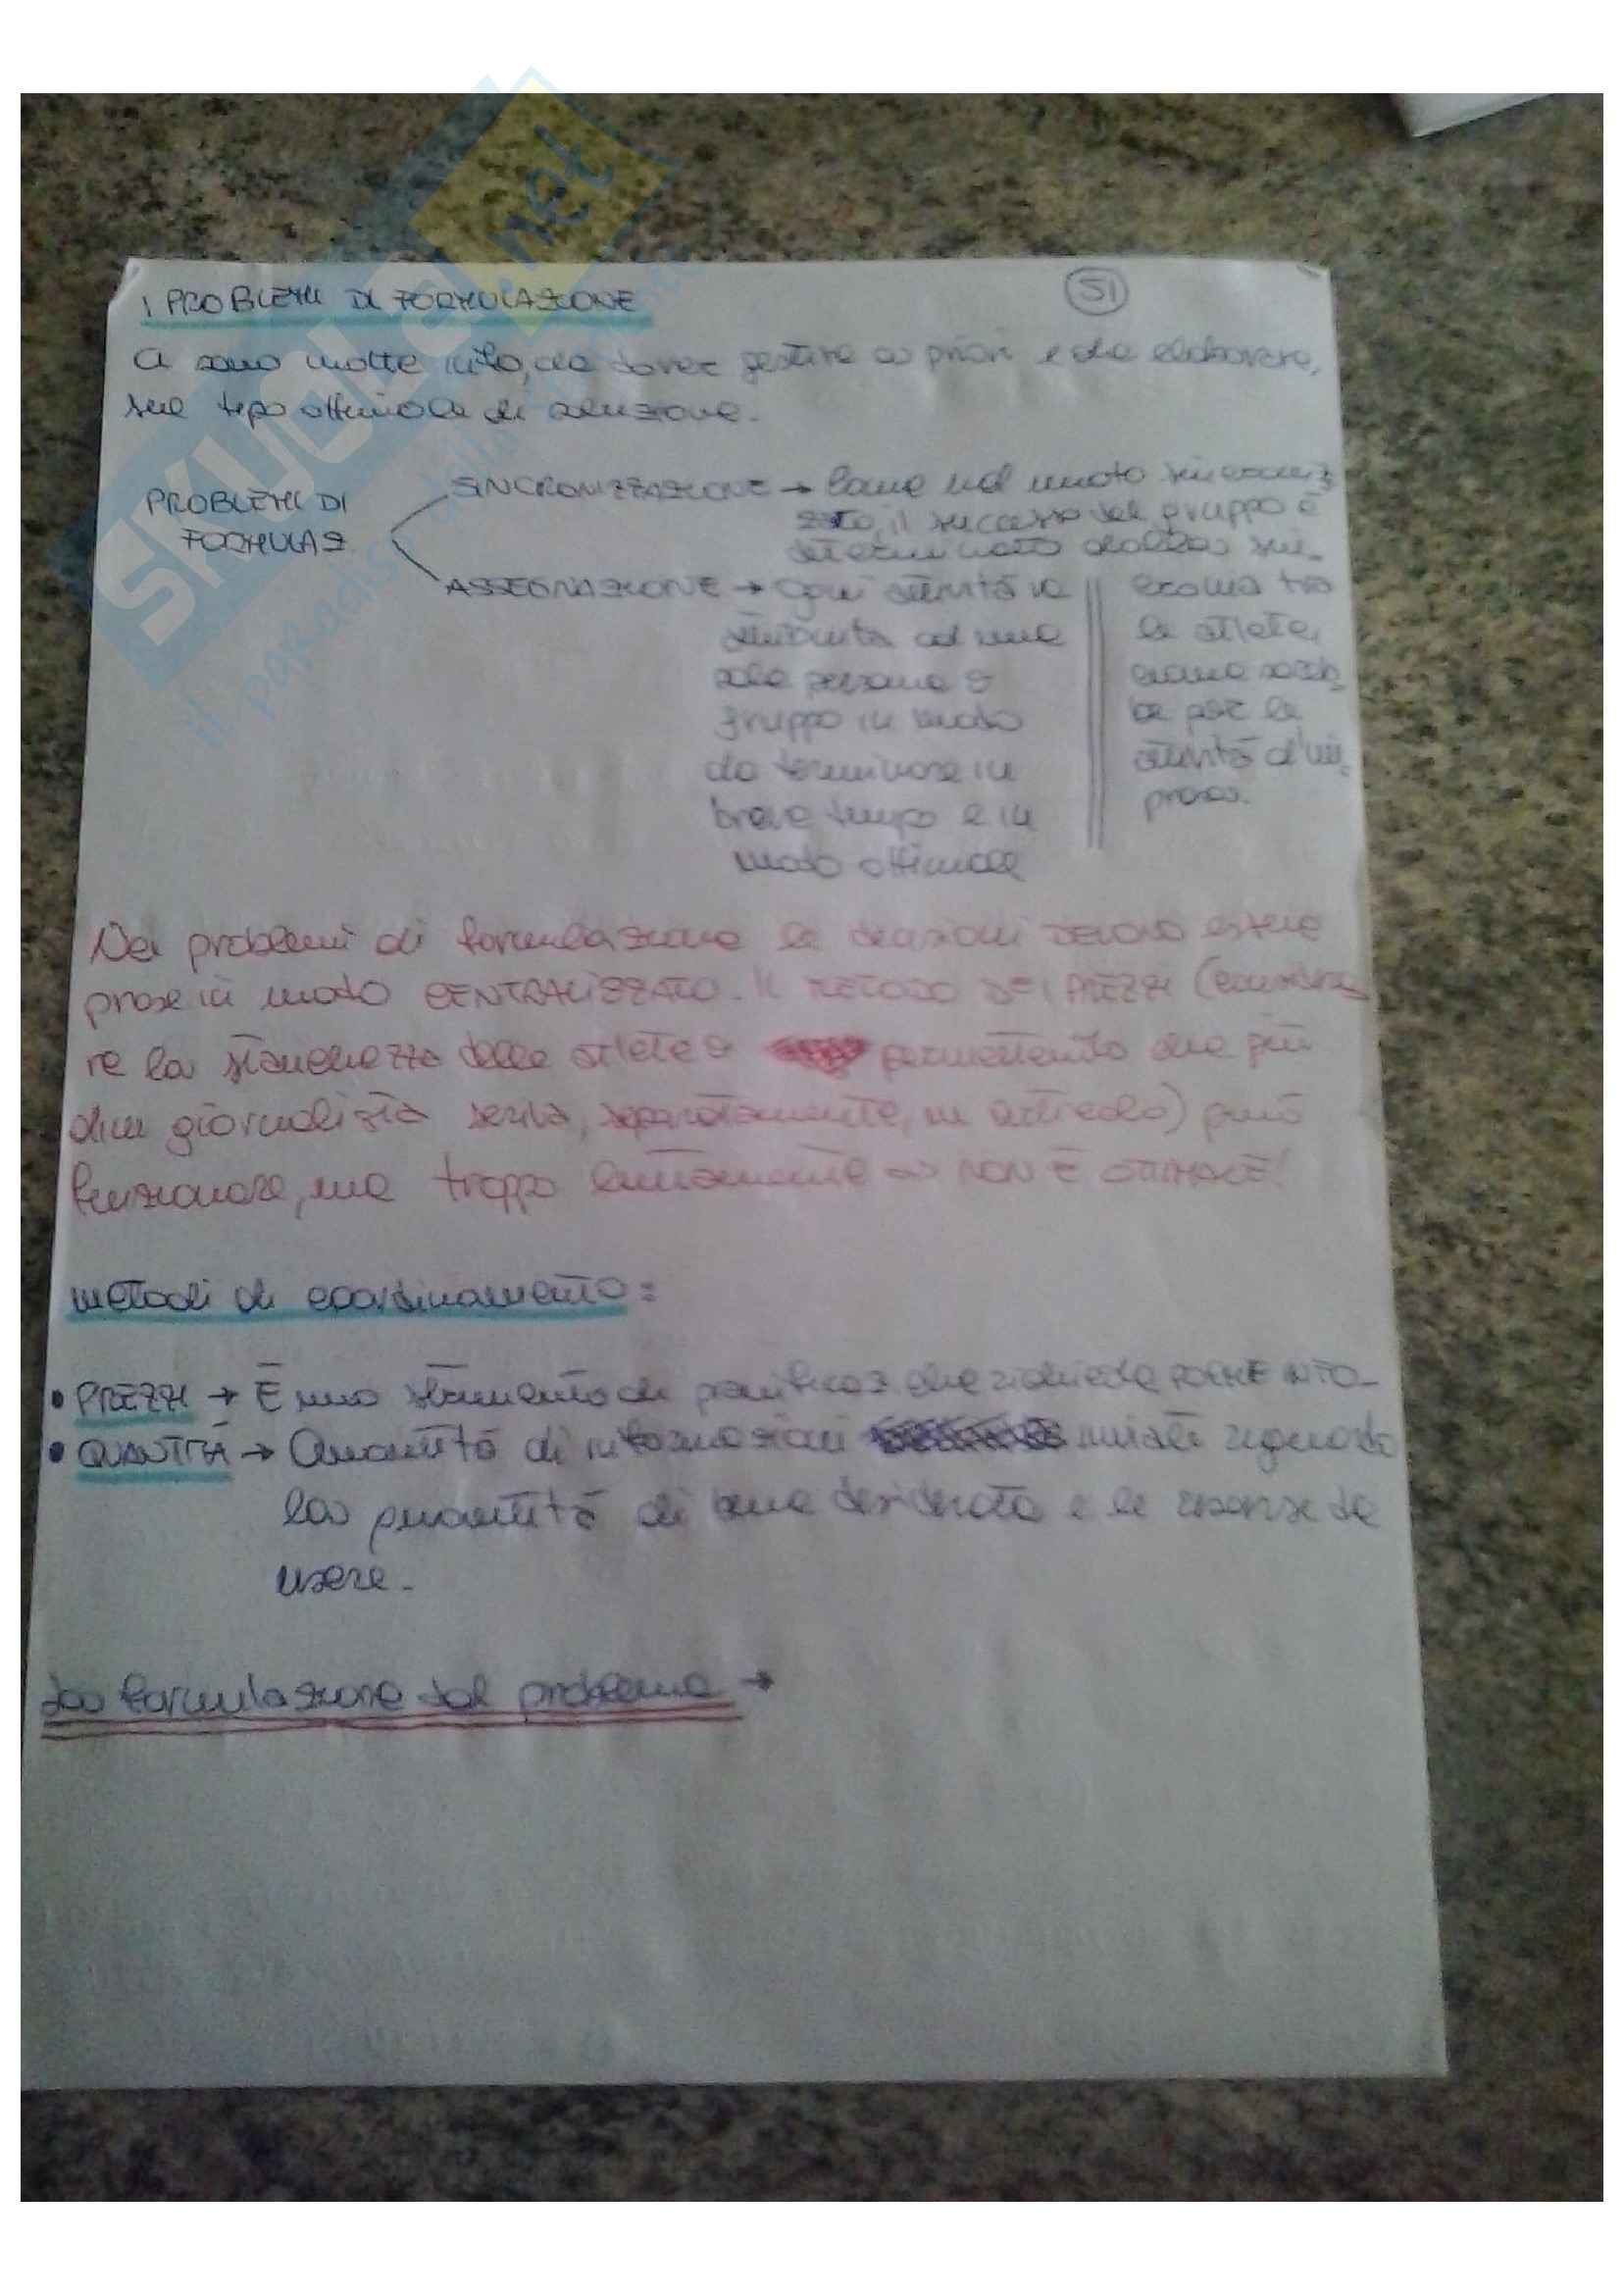 I PROBLEMI DI FORMULAZIONE
51
Ci sono molte info, da dover gestire a priori e da elaborare,
sul tipo ottimale di soluzione.
PROBLEMI DI
FORMULAZ.
SINCRONIZZAZIONE → Come nel nuoto sincroniz
zato, il successo del gruppo è
determinato dalla sin-
cronia tra
le atlete,
così sareb-
be per le
attività d'im-
presa.
ASSEGNAZIONE → Ogni attività va
attribuita ad una
sola persona o
gruppo in modo
da terminare in
breve tempo e in
modo ottimale
Nei problemi di formulazione le decisioni devono essere
prese in modo CENTRALIZZATO. Il METODO DEI PREZZI
re la stanchezza delle atlete o permettendo che più
di un giornalista scriva, separatamente, un articolo) può
funzionare, ma troppo lentamente NON È OTTIMALE!
metodi di coordinamento:
• PREZZI → È uno strumento di che richiede POCHE INFO-
• QUANTITÀ → Quantità di informazioni iniziali riguardo
la quantità di bene desiderata e le risorse da
usare.
La formulazione del problema →
SKUOLA.net
il paradiso